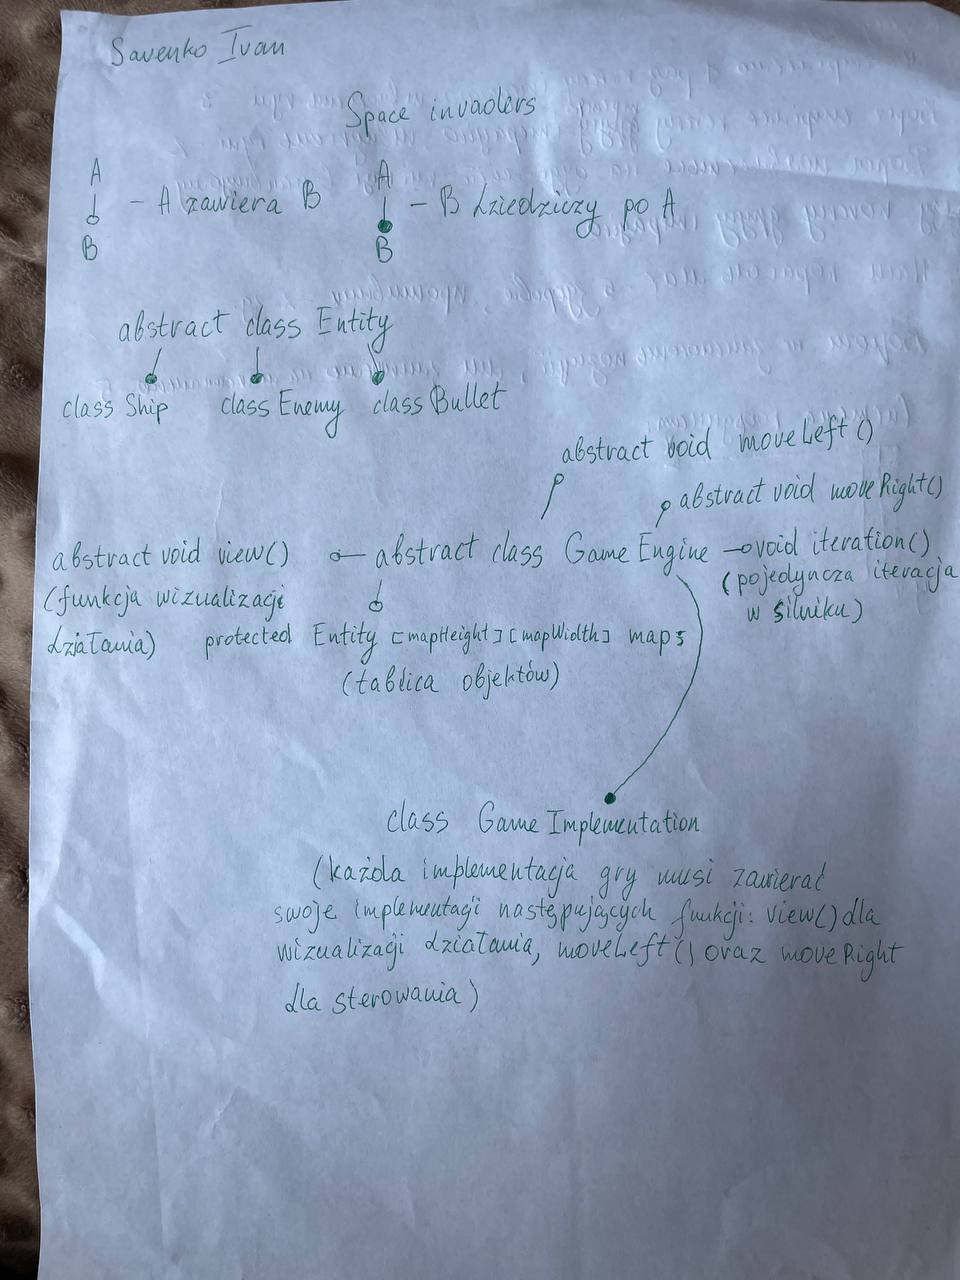 Savenko Ivan
Space invaders
A
- A zawiera B
B
A
- B dziedziczy po A
B
abstract class Entity
class Ship class Enemy class Bullet
abstract void moveLeft()
abstract void moveRight()
abstract void view() abstract class Game Engine void iteration()
(funkcja wizualizacji (pojedyncza iteracja
działania) w silniku)
protected Entity [mapHeight][mapWidth] map;
(tablica objektów)
class Game Implementation
(każda implementacja gry musi zawierać
swoje implementagi następujących funkcji: view() dla
wizualizagi działania, moveLeft() oraz moveRight
dla sterowania)